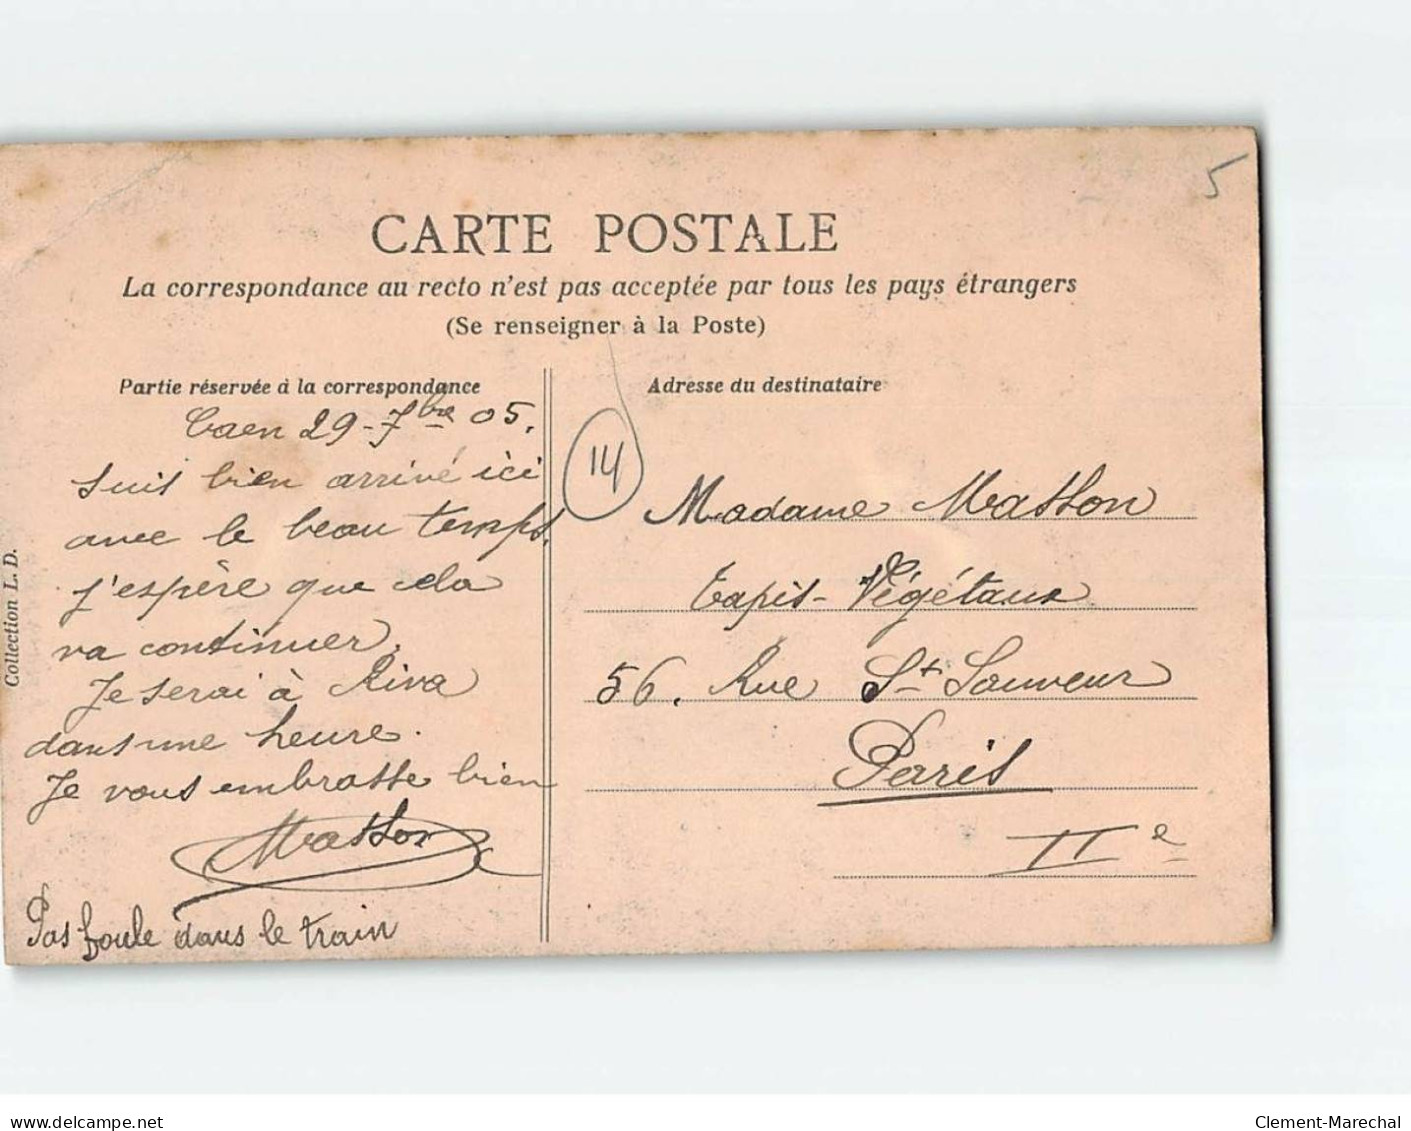 5
CARTE POSTALE
La correspondance au recto n'est pas acceptée par tous les pays étrangers
(Se renseigner à la Poste)
Partie réservée à la correspondance
Caen 29-7bre 05.
suis bien arrivé ici
avec le beau temps.
j'espère que cela
va continuer.
Je serai à Riva
dans une heure.
Je vous embrasse bien
Masson
Pas foule dans le train
Collection L. D.
Adresse du destinataire
14
Madame Masson
Tapis-Végétaux
56. Rue St. Sauveur
Paris
IIe
www.delcampe.net
Clement-Marechal